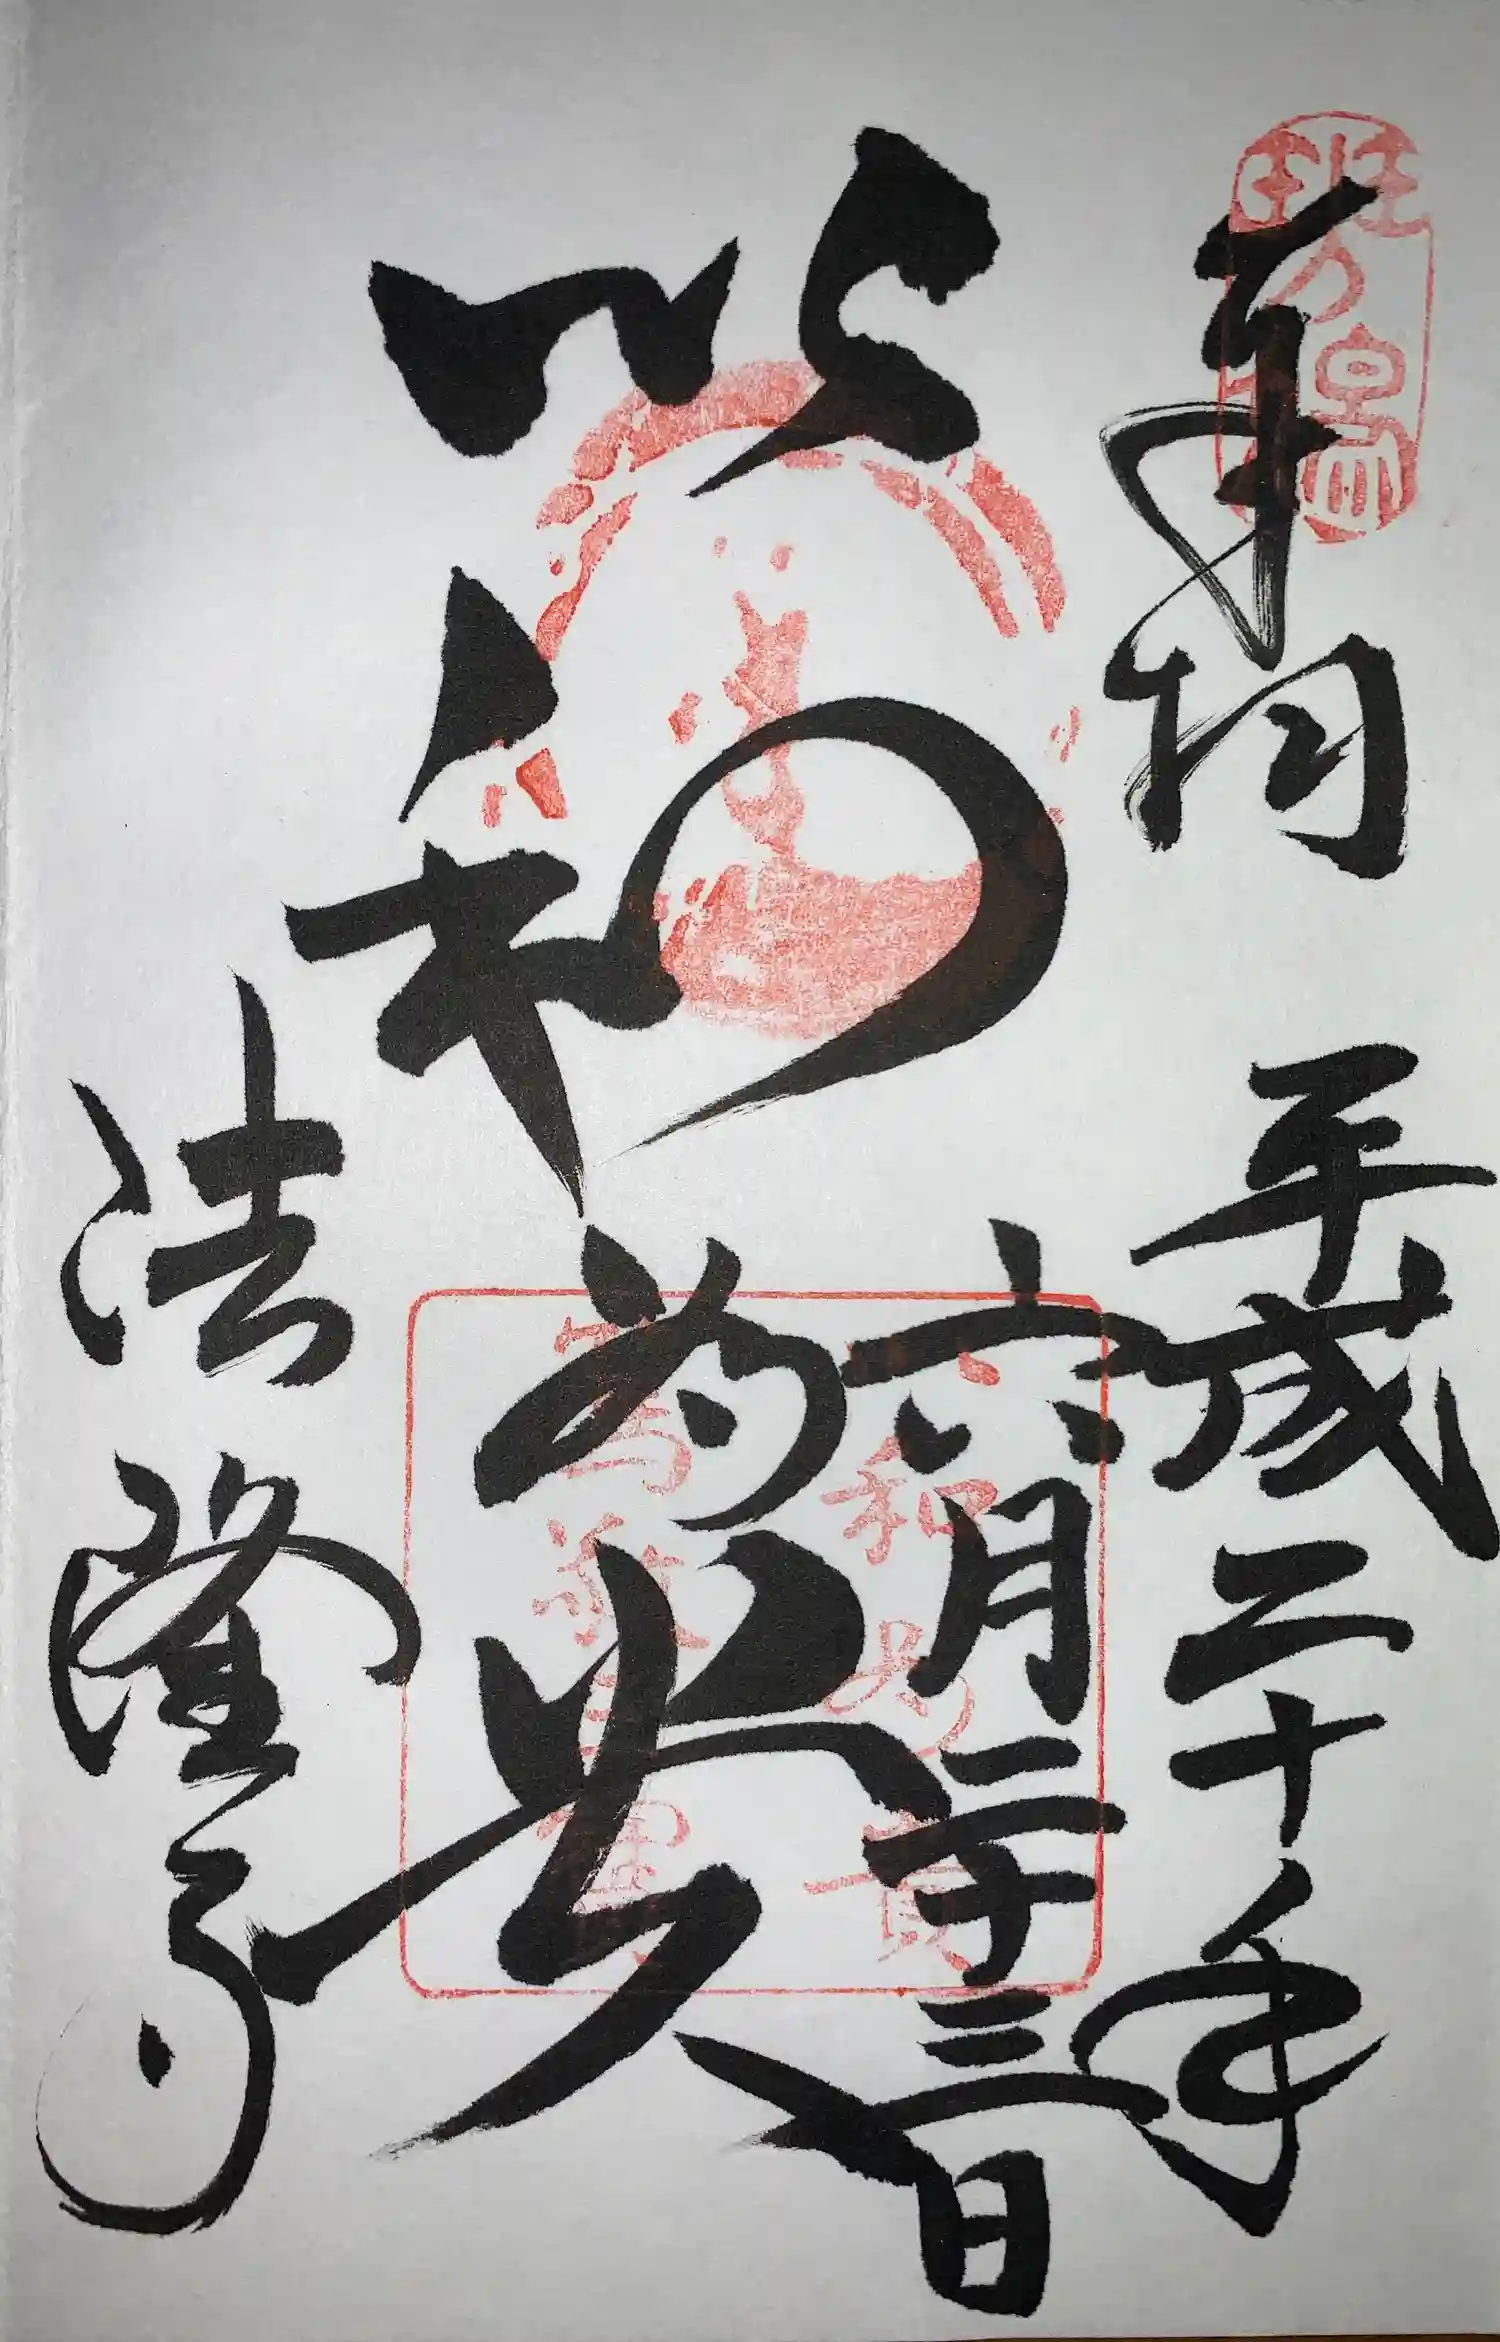 奉拝 平成二十年
六月二十三日
以和為貴
法隆寺